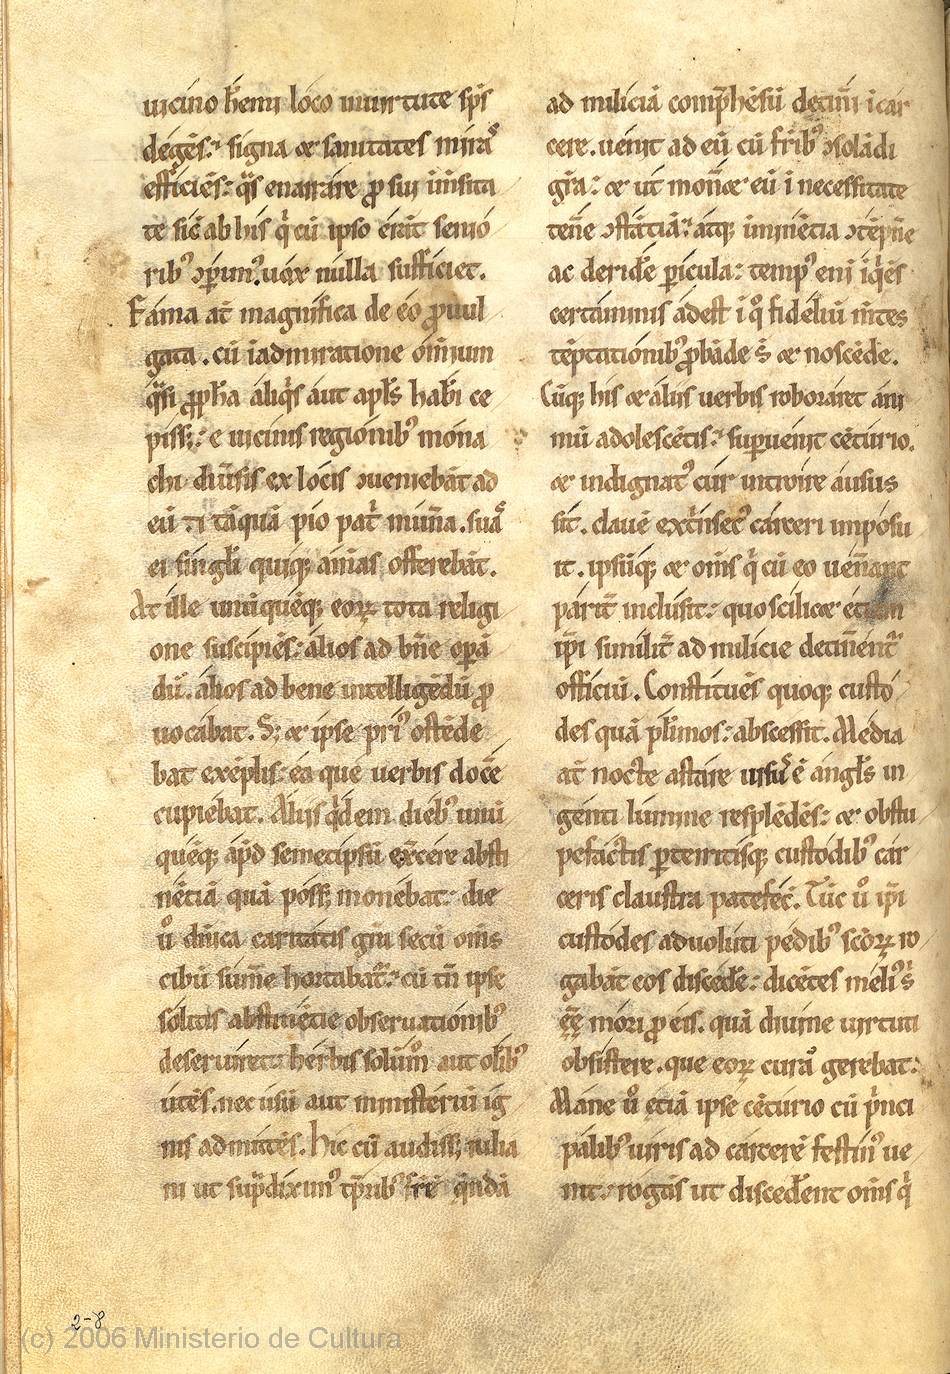 uicino heremi loco in uirtute sp̄s
degēs: signa & sanitates mira
efficiēs: q̄s enarrare p sui īmsita
te sic̄ ab his q̇ cū ipso erāt senio
rib⁹ ꝯp̄im⁹. uox nulla sufficiet.
Fama at̄ magnifica de eo ꝓuul
gata. cū ī admiratione om̄ium
q̄si ꝓph̄a aliq̇s aut apl̄s hab̄i ce
piss&: e uicinis regionib⁹ mona
chi diu̅sis ex locis ꝯueniebāt ad
eū & tāquā pio patī mun̄a. sua
ei singl̄i quiq; animas offerebāt.
At ille unūquēq; eoꝝ tota religi
one suscipiēs: alios ad bn̄e opā
dū. alios ad bene intelligēdū ꝓ
uocabat. S; & ipse pri⁹ ostēde
bat exēplis: ea que uerbis docē
cupiebat. Aliis q̇dem dieb⁹ unū
quēq; ap̄d semetipsū exc̄ere absti
nētiā quā poss& monebat: die
u̅ dn̄ica caritatis gr̄a secū om̄s
cibū sum̄e hortabat᷑: cū tn̄ ipse
solitis abstinētie obseruationib⁹
deseruiret: herbis solum̄ aut olib⁹
utēs. nec usū aut ministeriū ig
nis admittēs. Hic cū audiss& iulia
ni ut sup̄diximus tp̄rib⁹ fr̄e q̄ndā
ad miliciā comp̄hēsū detin̄i ī car
cere. uenit ad eū cū fr̄ib⁹ ꝯsolādi
gr̄a: & ut mon̄et eū ī necessitate
ten̄e ꝯstātiā: atq; imin̄ētia ꝯtēpn̄e
ac derid̄e picula: temp⁹ eni īq̇ēs
certaminis adest ī q̊ fideliū m̄tes
tēptationib⁹ ꝓbāde s̄ & noscēde.
Cūq; his & aliis uerbis roboraret ani
mū adolescētis: supuenit cēturio.
& indignat⁹ cur introire ausus
sit. clauē extrīsec⁹ carceri imposu
it. ipsūq; & om̄s q̇ cū eo uen̄ant
parit̄ inclusit: quo scilic& etiam
ip̄i similit̄ ad milicie detin̄ent᷑
officiū. Constituēs quoq; custo
des quā pl̄imos: abscessit. Media
at̄ nocte astare uisus ē angl̄s in
genti lumine resplēdēs: & obstu
pefactis ptemtisq; custodib⁹ car
ceris claustra patefec̄. Tūc u̅ ip̄i
custodes aduoluti pedib⁹ sc̄oꝝ ro
gabāt eos disced̄e: dicētes meli⁹ s̄
ēē mori ꝓ eis. quā diuine uirtuti
obsistere. que eoꝝ curā gerebat:
Mane u̅ etiā ipse cēturio cū p̄nci
palib⁹ uiris ad carcerē festin⁹ ue
nit: rogās ut disced̄ent om̄s q̇
2-8
(c) 2006 Ministerio de Cultura